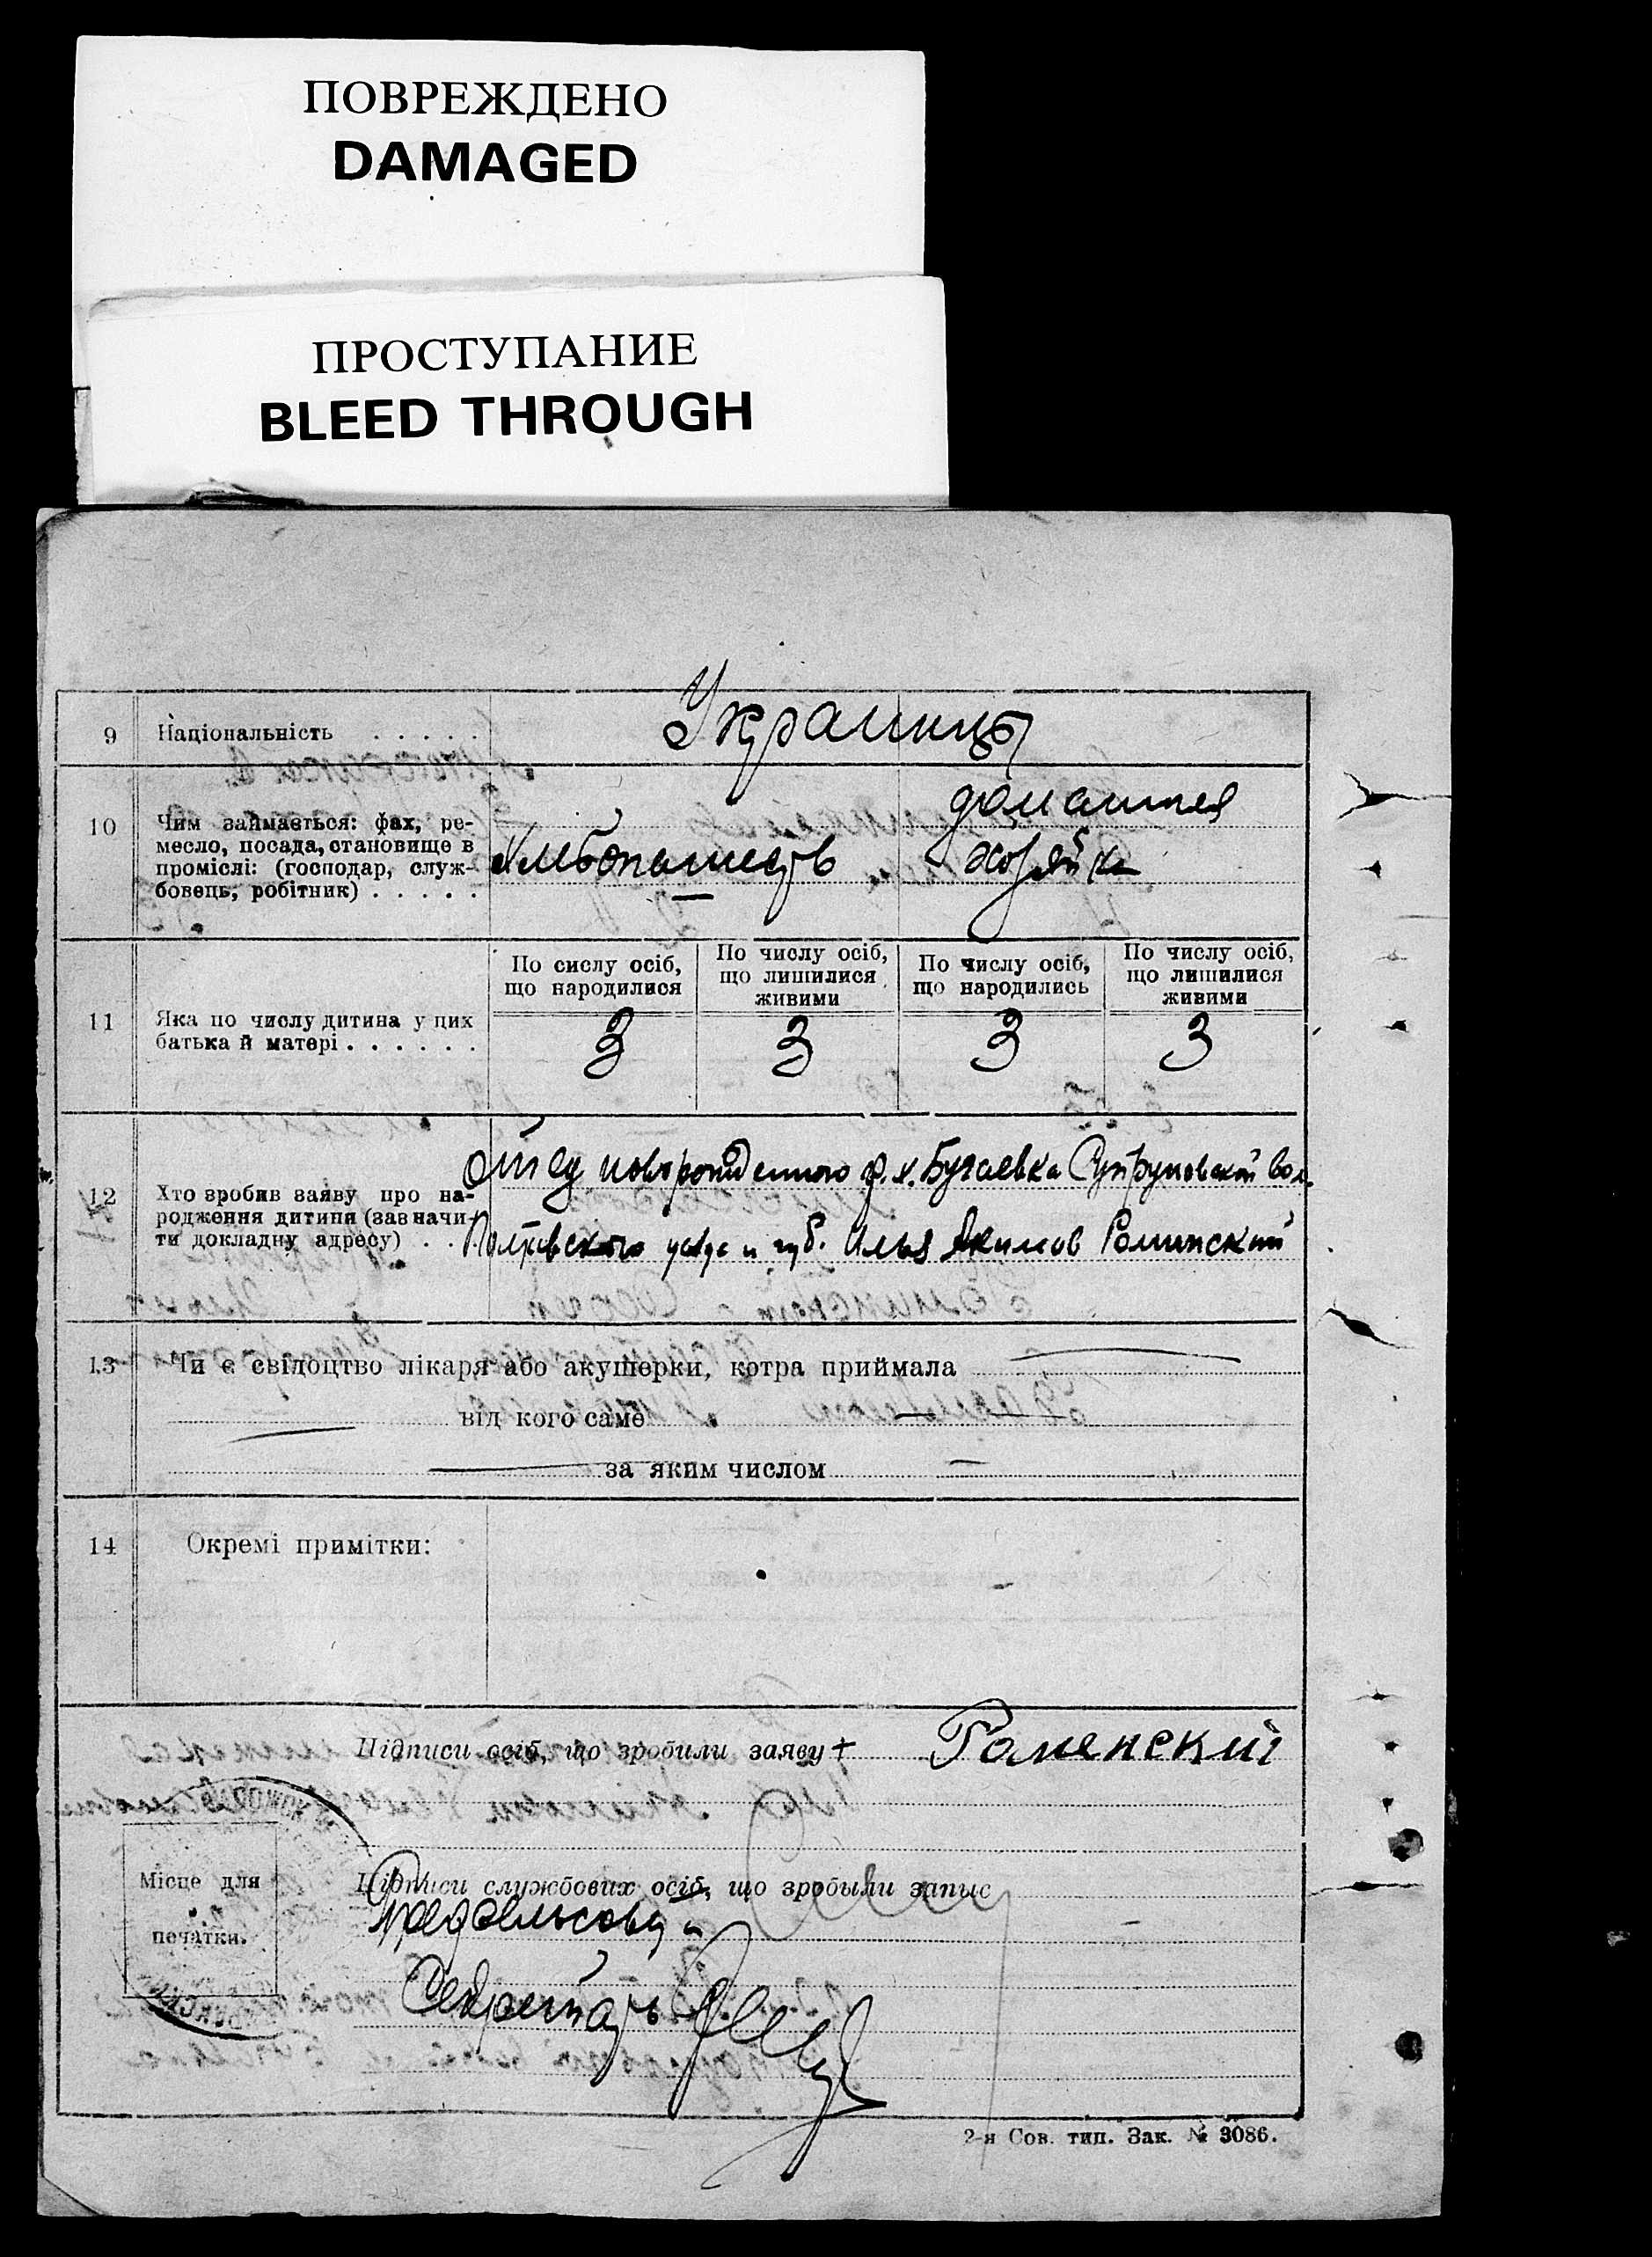 ПОВРЕЖДЕНО
DAMAGED
ПРОСТУПАНИЕ
BLEED THROUGH
9 Національність . . . . . Украинцы
10 Чим займається: фах, ре-
месло, посада, становище в
проміслі: (господар, служ-
бовець, робітник) . . . . .
Хлебопашець
домашняя
хозяйка
11 Яка по числу дитина у цих
батька й матері . . . . . .
По сислу осіб,
що народилися
По числу осіб,
що лишилися
живими
По числу осіб,
що народились
По числу осіб,
що лишилися
живими
3 3 3 3
12 Хто зробив заяву про на-
родження дитини (зазначи-
ти докладну адресу) . .
Отец новорожденного х. Бугаевка Супруновской вол.
Полтавского уезда и губ. Илья Якимов Роминский
13 Чи є свідоцтво лікаря або акушерки, котра приймала
від кого саме
за яким числом
14 Окремі примітки:
Підписи осіб, що зробили заяву + Роменский
Місце для
печатки.
Підписи службових осіб, що зробыли запыс
Предсельсовета
Секретарь
2-я Сов. тип. Зак. № 3086.